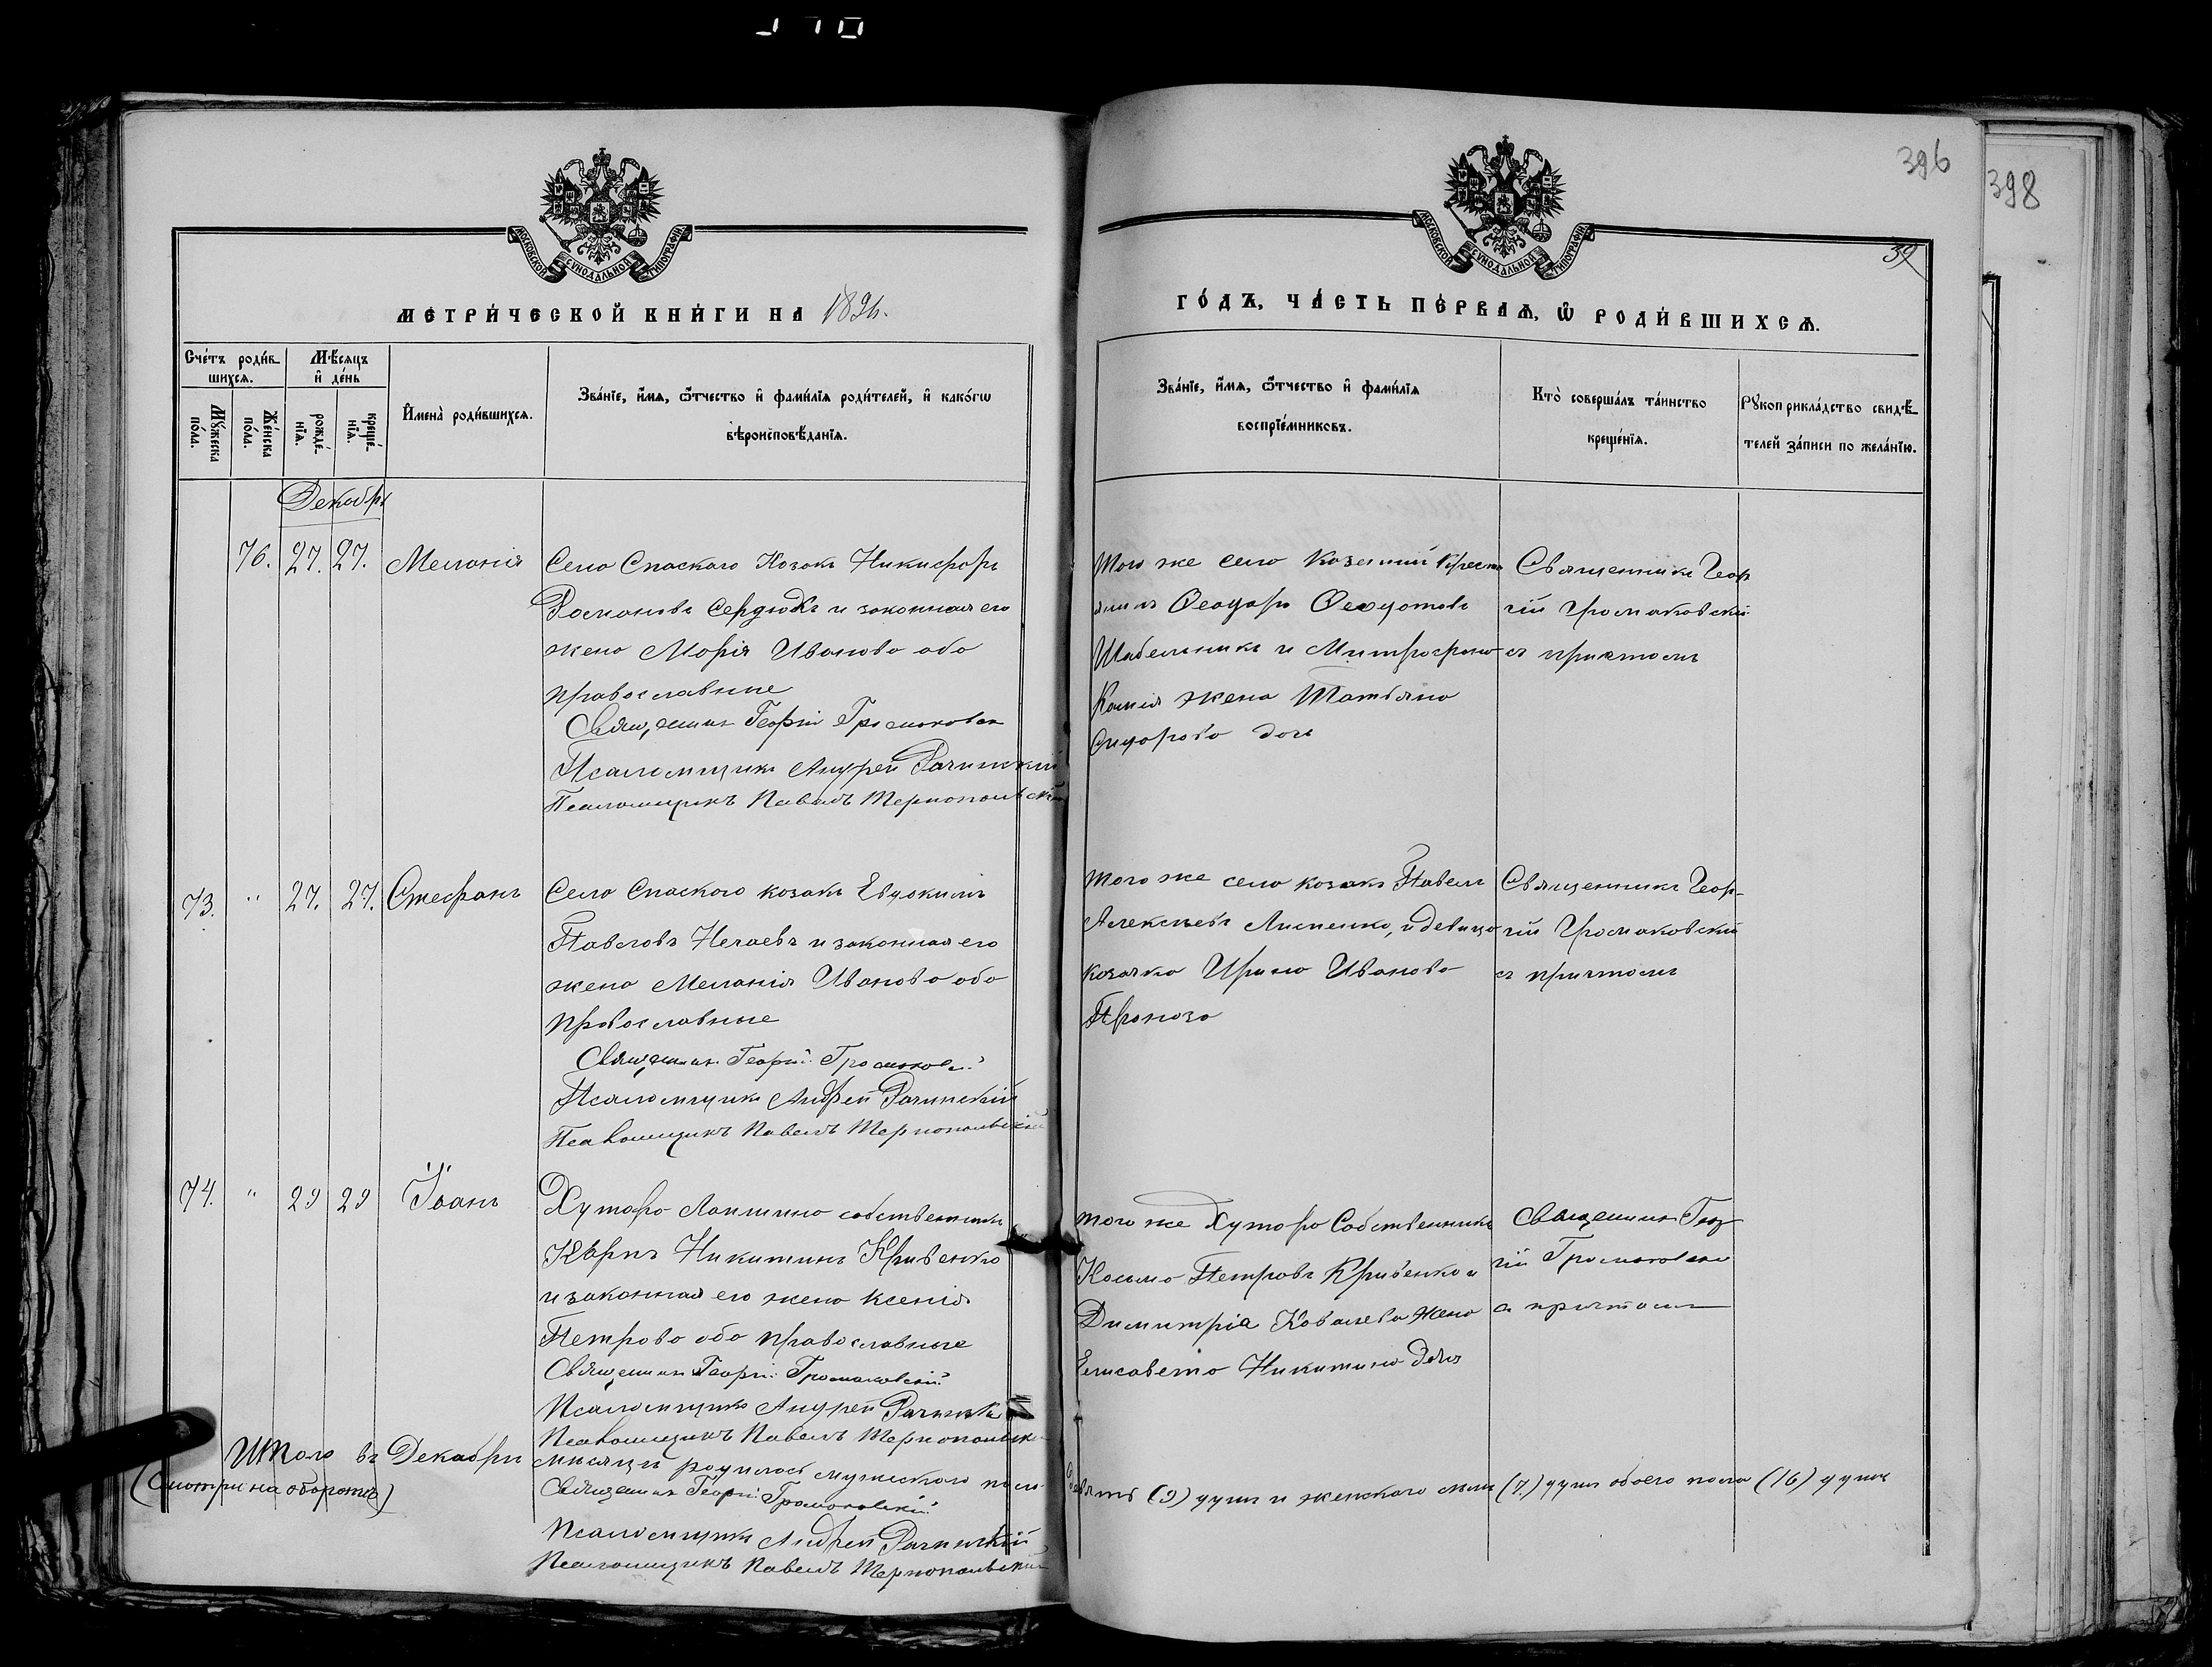 396
398
39
МОСКОВСКОЙ СѴНОДАЛЬНОЙ ТИПОГРАФІИ
МОСКОВСКОЙ СѴНОДАЛЬНОЙ ТИПОГРАФІИ
МЕТРИ́ЧЕСКОЙ КНИ́ГИ НА 1896.
ГО́ДЪ, ЧА́СТЬ ПЕ́РВАѦ, Ѡ҆ РОДИ́ВШИХСѦ.
Сче́тъ роди́в-
шихсѧ.
Мѣ́сѧцъ
и҆ де́нь
Мꙋ́жеска
по́ла.
Же́нска
по́ла.
рожде́-
нїѧ.
креще́-
нїѧ.
И҆мена̀ роди́вшихсѧ.
Зва́нїе, и҆́мѧ, ѻ҆́тчество и҆ фами́лїѧ роди́телей, и҆ како́гѡ
вѣроисповѣ́данїѧ.
Зва́нїе, и҆́мѧ, ѻ҆́тчество и҆ фами́лїѧ
воспрїе́мниковъ.
Кто̀ соверша́лъ та́инство
креще́нїѧ.
Рꙋкоприкла́дство свидѣ́-
телей за́писи по жела́нїю.
Декабрь
76. 27. 27. Меланія
Села Спаскаго Козакъ Никифоръ
Романовъ Сердюкъ и законная его
жена Марія Иванова оба
православные
Священникъ Георгій Громаковскій
Псаломщикъ Андрей Рачинскій
Псаломщикъ Павелъ Тернопольскій
Того же села Казенный Крестья
нинъ Ѳеодоръ Ѳеодотовъ
Шабельникъ и Митрофана
жена Татьяна
Сидорова дочь
Священникъ Геор
гій Громаковскій
съ причтомъ
73. " 27. 27. Стефанъ
Села Спаскаго козакъ Евдокимъ
Павловъ Нечаевъ и законная его
жена Меланія Иванова оба
православные
Священникъ Георгій Громаковскій
Псаломщикъ Андрей Рачинскій
Псаломщикъ Павелъ Тернопольскій
Того же села козакъ Павелъ
Алексѣевъ Лисненко, и девица
козачка Ирина Иванова
Проноза
Священникъ Геор-
гій Громаковскій
съ причтомъ
74. " 29 29 Іоанъ
Хутора Лапшина собственникъ
Карпъ Никитинъ Кривенко
и законная его жена Ксенія
Петрова оба православные
Священникъ Георгій Громаковскій
Псаломщикъ Андрей Рачинскій
Псаломщикъ Павелъ Тернопольскій
Того же Хутора Собственникъ
Косьма Петровъ Кривенко и
Димитрія Ковалева жена
Елисавета Никитина дочь
Священникъ Геор
гій Громаковскій
съ причтомъ
Итого въ Декабрѣ мѣсяцѣ родилось мужескаго пола девять (9) душъ и женскаго семь (7) душъ обоего пола (16) душъ
(Смотри на оборотѣ)
Священникъ Георгій Громаковскій
Псаломщикъ Андрей Рачинскій
Псаломщикъ Павелъ Тернопольскій